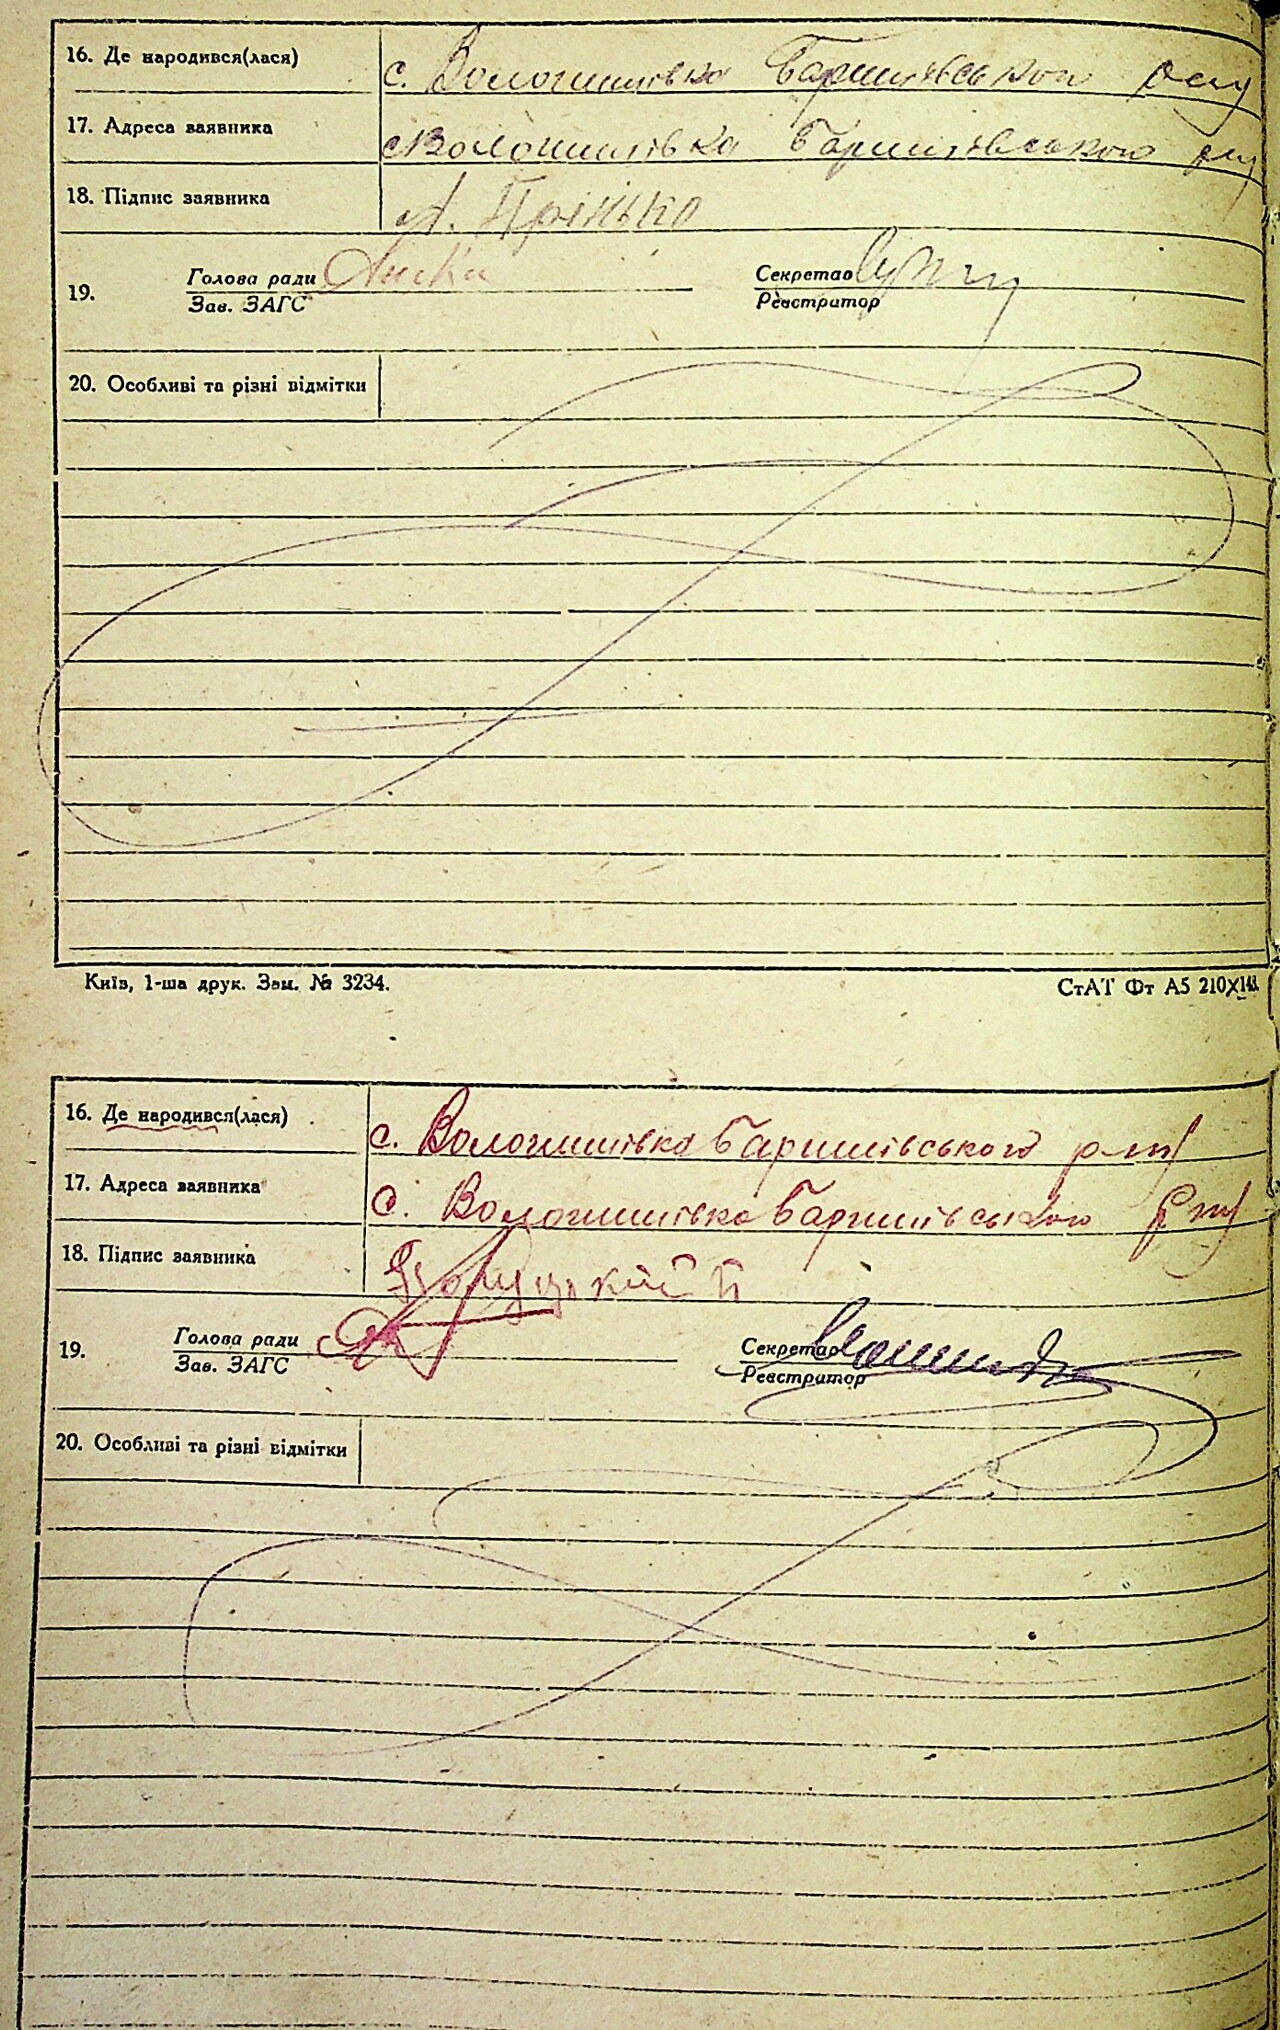 16. Де народився(лася) с. Волошинівка Баришівського р-ну
17. Адреса заявника с. Волошинівка Баришівського р-ну
18. Підпис заявника
Голова ради Секретар
19.
Зав. ЗАГС Реєстратор
20. Особливі та різні відмітки
Київ, 1-ша друк. Зам. № 3234. СтАТ Фт А5 210X148.
16. Де народився(лася) с. Волошинівка Баришівського р-ну
17. Адреса заявника с. Волошинівка Баришівського р-ну
18. Підпис заявника
Голова ради Секретар
19.
Зав. ЗАГС Реєстратор
20. Особливі та різні відмітки